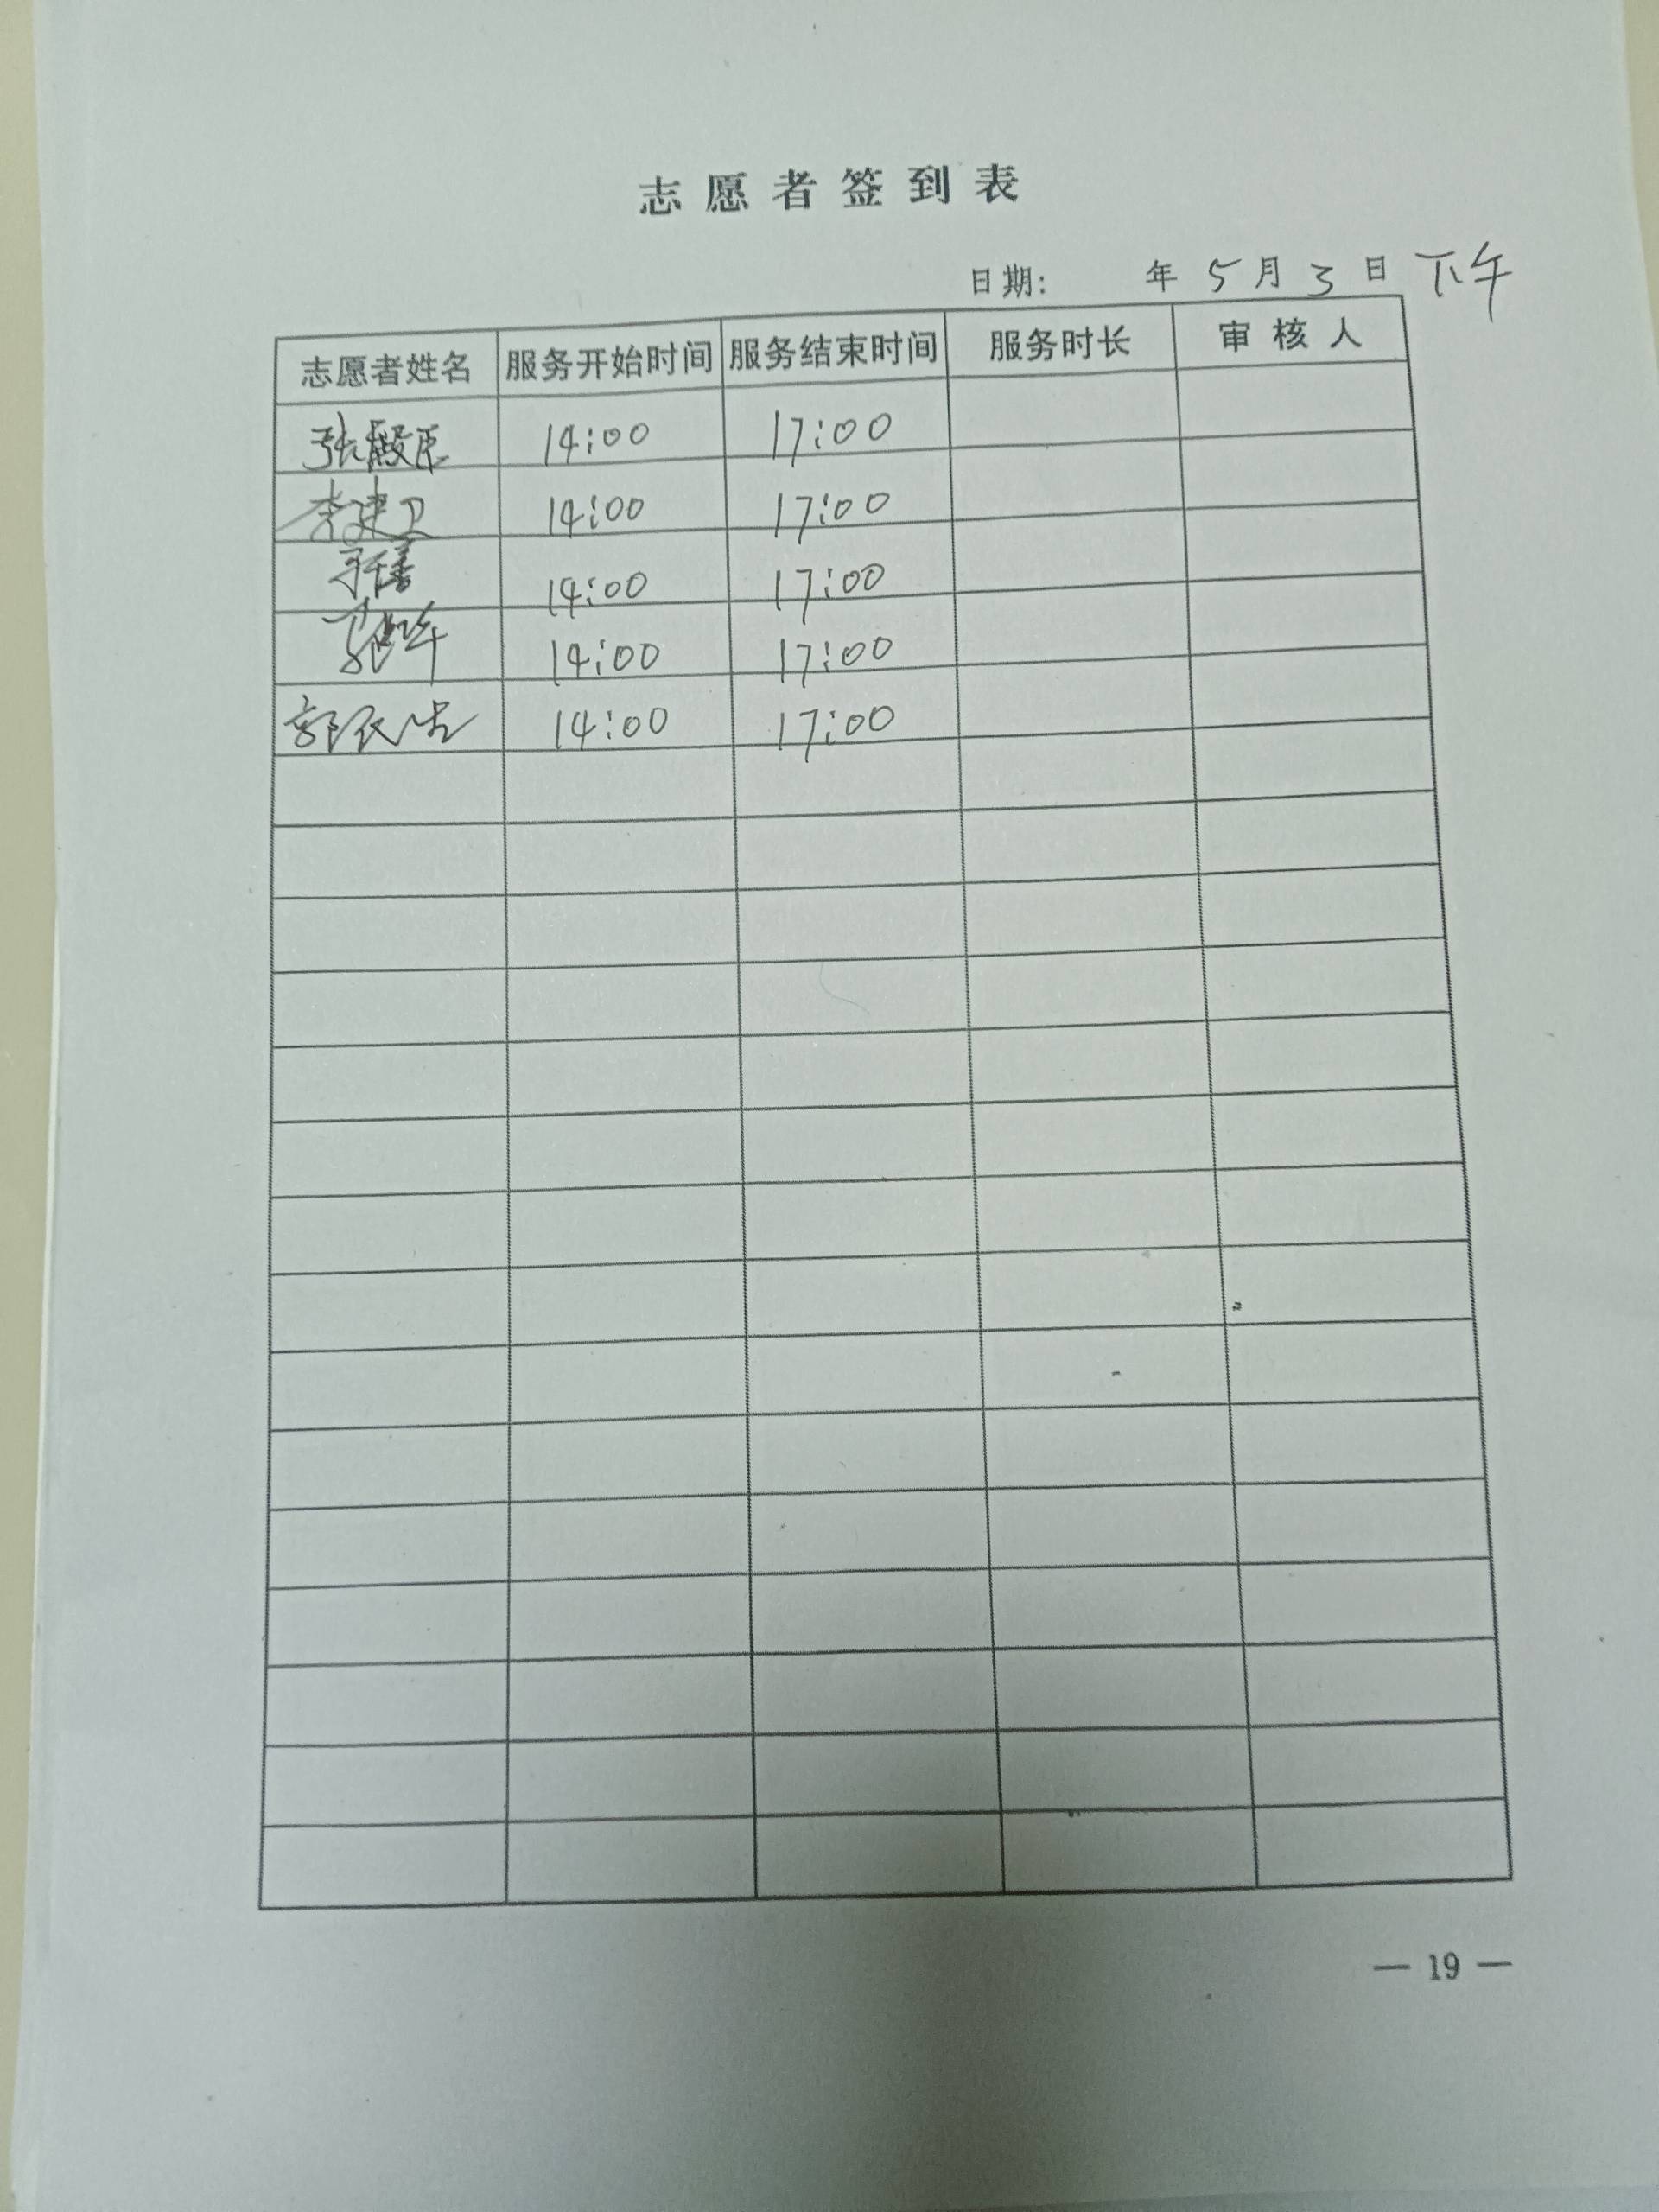 志愿者签到表
日期: 年 5 月 3 日 下午
志愿者姓名 服务开始时间 服务结束时间 服务时长 审核人
张殿臣 14:00 17:00
李建卫 14:00 17:00
14:00 17:00
14:00 17:00
郭 14:00 17:00
— 19 —